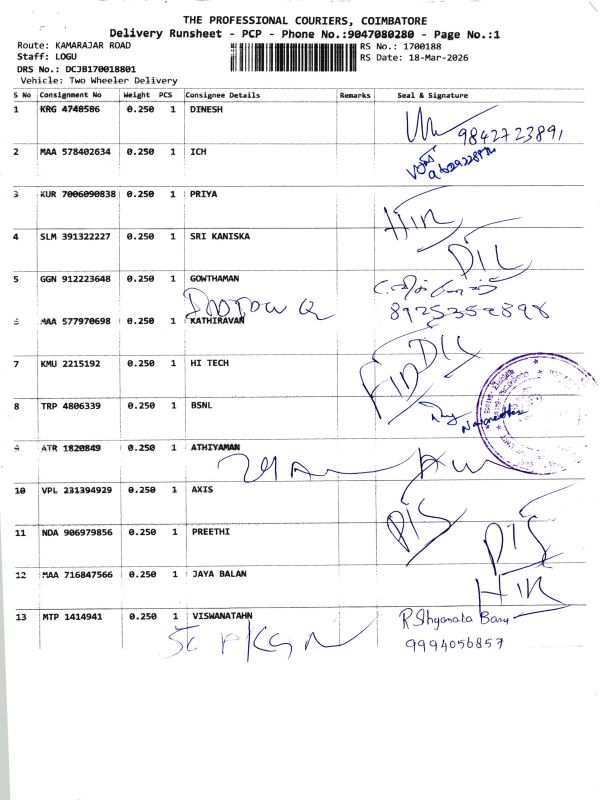 THE PROFESSIONAL COURIERS, COIMBATORE
Delivery Runsheet - PCP - Phone No.:9047080280 - Page No.:1
Route: KAMARAJAR ROAD RS No.: 1700188
Staff: LOGU RS Date: 18-Mar-2026
DRS No.: DCJB170018801
Vehicle: Two Wheeler Delivery
S No Consignment No Weight PCS Consignee Details Remarks Seal & Signature
1 KRG 4740586 0.250 1 DINESH
9842723891
2 MAA 578402634 0.250 1 ICH
3 KUR 7006090838 0.250 1 PRIYA
HIR
4 SLM 391322227 0.250 1 SRI KANISKA
DIL
5 GGN 912223648 0.250 1 GOWTHAMAN
8925352898
6 MAA 577970698 0.250 1 KATHIRAVAN
7 KMU 2215192 0.250 1 HI TECH
DIL
8 TRP 4806339 0.250 1 BSNL
9 ATR 1820849 0.250 1 ATHIYAMAN
10 VPL 231394929 0.250 1 AXIS
PIS
11 NDA 906979856 0.250 1 PREETHI
PIS
12 MAA 716847566 0.250 1 JAYA BALAN
HIR
13 MTP 1414941 0.250 1 VISWANATAHN
R. Shyamala Banu
9994056857